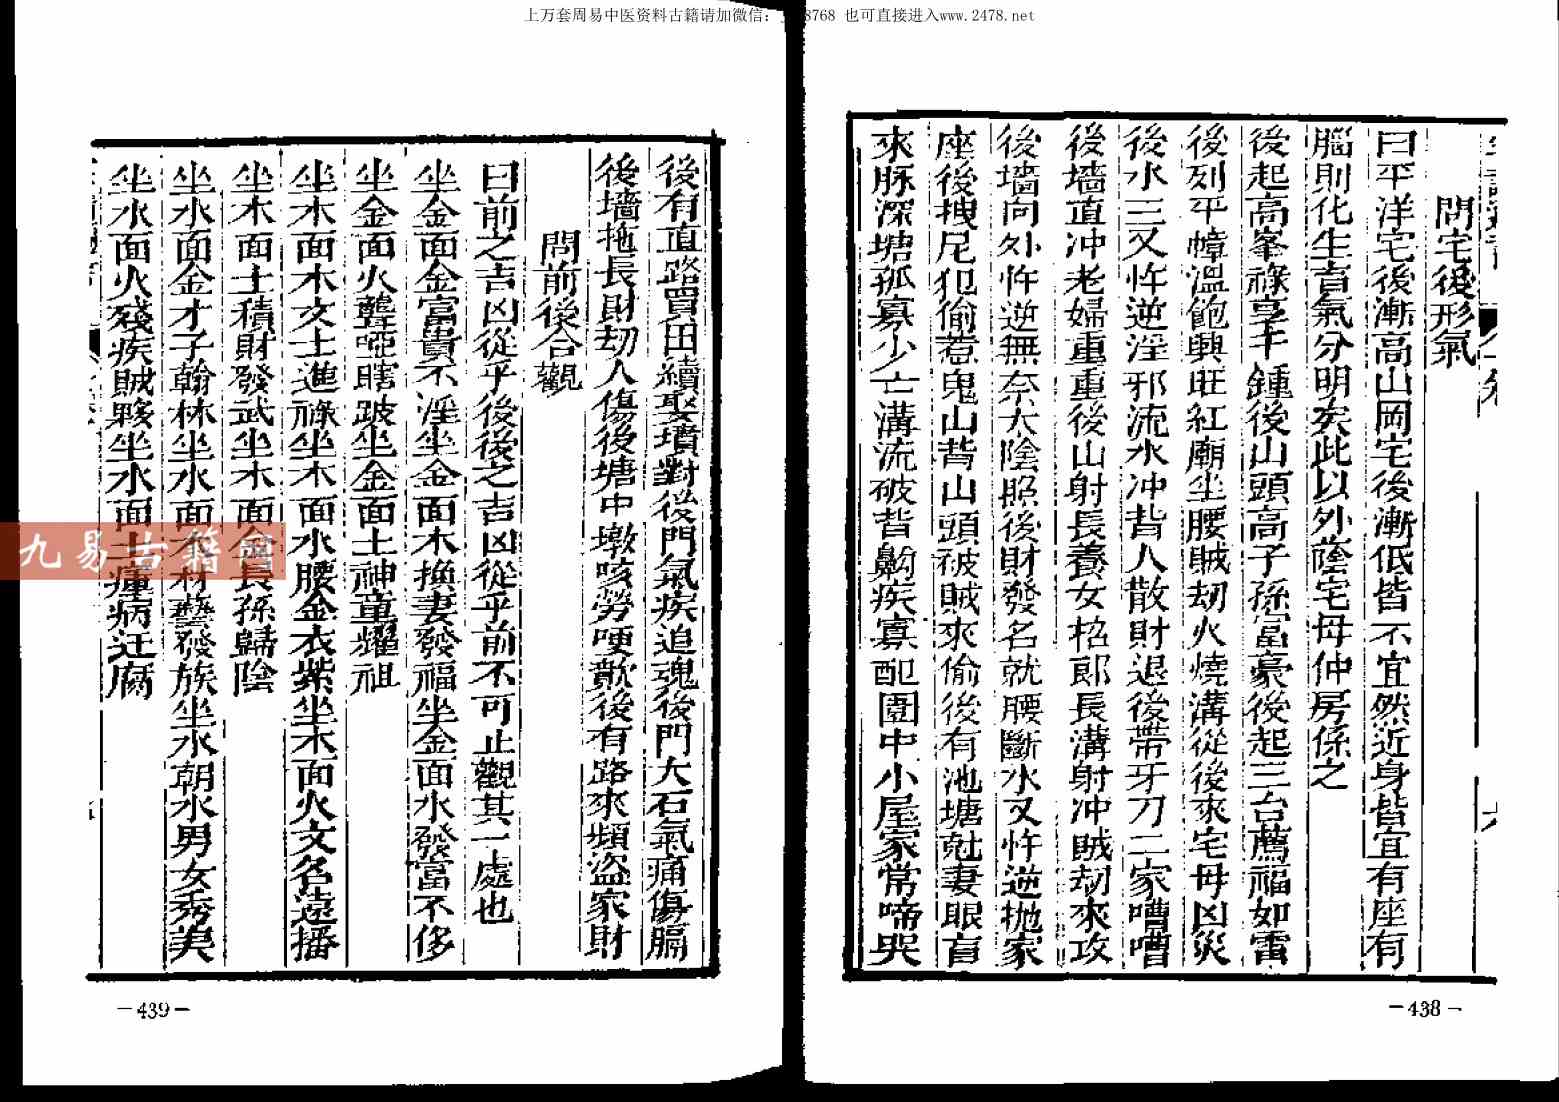 上万套周易中医资料古籍请加微信: 8768 也可直接进入www.2478.net
問宅後形氣
曰平洋宅後漸高山岡宅後漸低皆不宜然近身皆宜有座有
腦則化生育氣分明矣此以外蔭宅母仲房係之
後起高峯祿享千鍾後山頭高子孫富豪後起三台薦福如雷
後列平幛溫飽興旺紅廟坐腰賊刼火燒溝從後來宅母凶災
後水三叉忤逆淫邪流水冲背人散財退後帶牙刀二家嘈嘈
後墻直冲老婦重重後山射長養女招郎長溝射冲賊刼來攻
後墻向外忤逆無奈大陰照後財發名就腰斷水叉忤逆抛家
座後拽尾犯偷惹鬼山背山頭被賊來偷後有池塘尅妻眼盲
來脉深塘孤寡少亡溝流破背齁疾寡配圍中小屋家常啼哭
後有直路賣田續娶墳對後門氣疾追魂後門大石氣痛傷膈
後墻拖長財刼人傷後塘中墩咳勞哽歎後有路來頻盜家財
問前後合觀
曰前之吉凶從乎後後之吉凶從乎前不可止觀其一處也
坐金面金富貴不淫坐金面木換妻發福坐金面水發富不侈
坐金面火聾啞瞎跛坐金面土神童耀祖
坐木面木文士進祿坐木面水腰金衣紫坐木面火文名遠播
坐木面土積財發武坐木面金長孫歸陰
坐水面金才子翰林坐水面木材藝發族坐水朝水男女秀美
坐水面火殘疾賊夥坐水面土瘇病迂腐
九易古籍
－438－
－439－